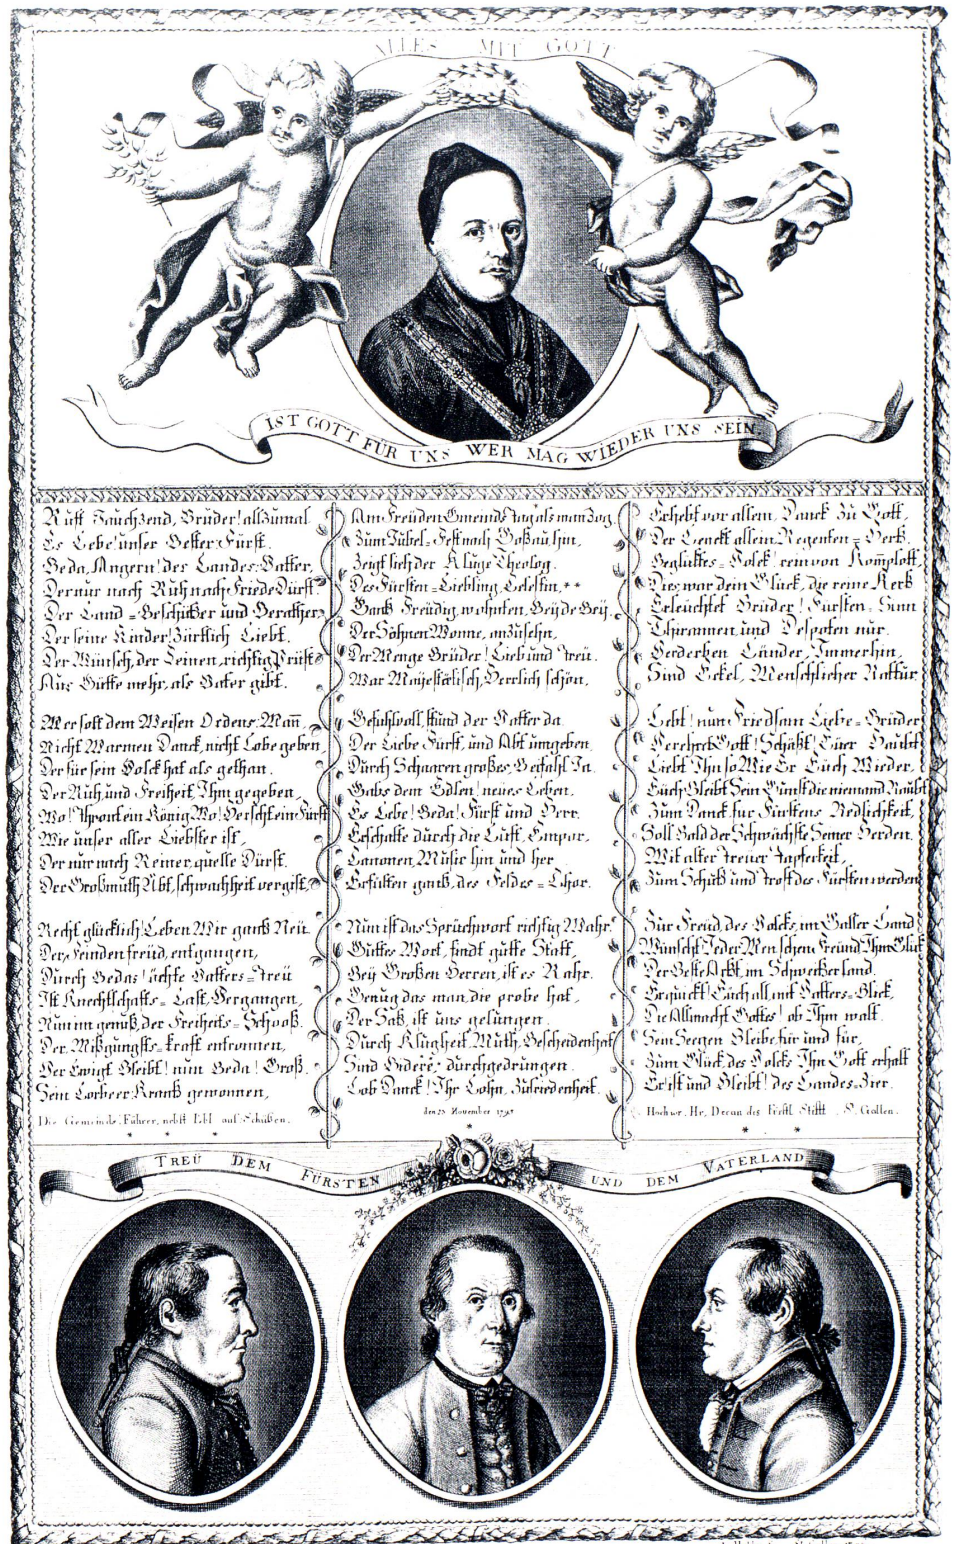 ALLES MIT GOTT
IST GOTT FÜR UNS WER MAG WIEDER UNS SEIN.
Rufft Jauchzend, Brüder! allzumal
Es Lebe! unser Bester Fürst.
Beda, Angern! der Landes-Vatter,
Der nur nach Ruh nach Friede Dürst.
Der Land-Beschützer und Berather,
Der seine Kinder! Zärtlich Liebt.
Der Wünsch, der Seinen, richtig Prüft
Aus Gütte mehr, als Vater gibt.
Wer solt dem Weisen Ordens-Mañ,
Nicht Warmen Danck, nicht Lobe geben,
Der für sein Volck hat als gethan.
Der Ruh und Freiheit, Ihm gegeben,
Wo! thront ein König, Wo! Herscht ein Fürst
Wie unser aller Liebster ist,
Der nur nach Reiner, quelle Dürst.
Der Großmuth übt, schwachheit vergist,
Recht glücklich! Leben Wir gantz Neü
Der, Feinden freüd, entgangen,
Durch Bedas! ächte Vatters-treü
Ist Knechtschafts-Last, Vergangen,
Nun im genuß, der Freiheits-Schooß.
Der, Mißgungsts-krafft entronnen,
Der Ewigt Bleibt! nun Beda! Groß.
Sein Lorbeer-Krantz gewonnen,
Die Gemeinds-Führer, nebst Lbl auß-Schüßen.
* * *
Am Freüden Gmeinds tag als man Zog.
Zum Jubel-Fest nach Goßau hin,
Zeigt sich der Kluge Theolog.
Des Fürsten-Liebling, Celestin, **
Gantz Freüdig wohnten, Beÿde Beÿ,
Der Söhnen Wonne, anzusehn,
Der Menge Brüder! Lieb und treü.
War Majestetisch, Herrlich schön,
Gefuhlvoll, stund der Vatter da
Der Liebe Fürst, und Abt umgeben,
Durch Schaaren großes, Beifahl Ja
Gabs dem Edlen! neues Leben.
Es Lebe! Beda! Fürst und Herr.
Erschalte durch die Luft, Empor,
Canonen, Music hin und her
Erfülten gantz, des Feldes-Chor.
Nun ist das Sprüchwort richtig Wahr.
Guttes Wort, findt gutte Statt,
Beÿ Großen Herren, ist es Rahr.
Genug das man, die probe hat,
Der Satz, ist uns gelungen.
Durch Klugheit, Muth, Bescheidenheit
Sind Bidere, durchgedrungen.
Lob Danck! Ihr Lohn, Zufriedenheit.
den 23 November 1795
*
Erhebt vor allem, Danck Zu Gott,
Der Lenckt allein, Regenten-Hertz.
Beglücktes-Volck! rein von Komplott,
Dis war dein Glück, die reine Kertz
Erleüchtet Brüder! Fürsten-Sinn
Thirannen, und Despoten nur.
Verderben Länder, Immerhin,
Sind Eckel, Menschlicher Nattur,
Lebt! nun Friedsam Liebe-Brüder
Verehret Gott! Schätzt! Eüer Haubt
Liebt Ihn so Wie Er Eüch Wieder.
Eüch Bleibt Sein Gunst die niemand Raubt
Zum Danck, für Fürstens Redlichkeit,
Soll Bald der Schwächste Seiner Herden.
Mit alter treuer tapferkeit,
Zum Schutz und trost des Fürsten werden
Zur Freüd, des Volcks, im Galler Land
Wünscht, Jeder Menschen Freund Ihm Glück
Der Beste Arbt, im Schweitzerland.
Erquickt! Eüch all, mit Vatters-Blick,
Die Allmacht Gottes! ob Ihm walt.
Sein Seegen Bleibe, für und für,
Zum Glück, des Volcks, Ihn Gott erhalt
Er ist und Bleibt! des Landes-Zier.
Hochwr. Hr. Decan des Fürstl Stifft. St. Gallen.
* *
TREÜ DEM FÜRSTEN UND DEM VATERLAND